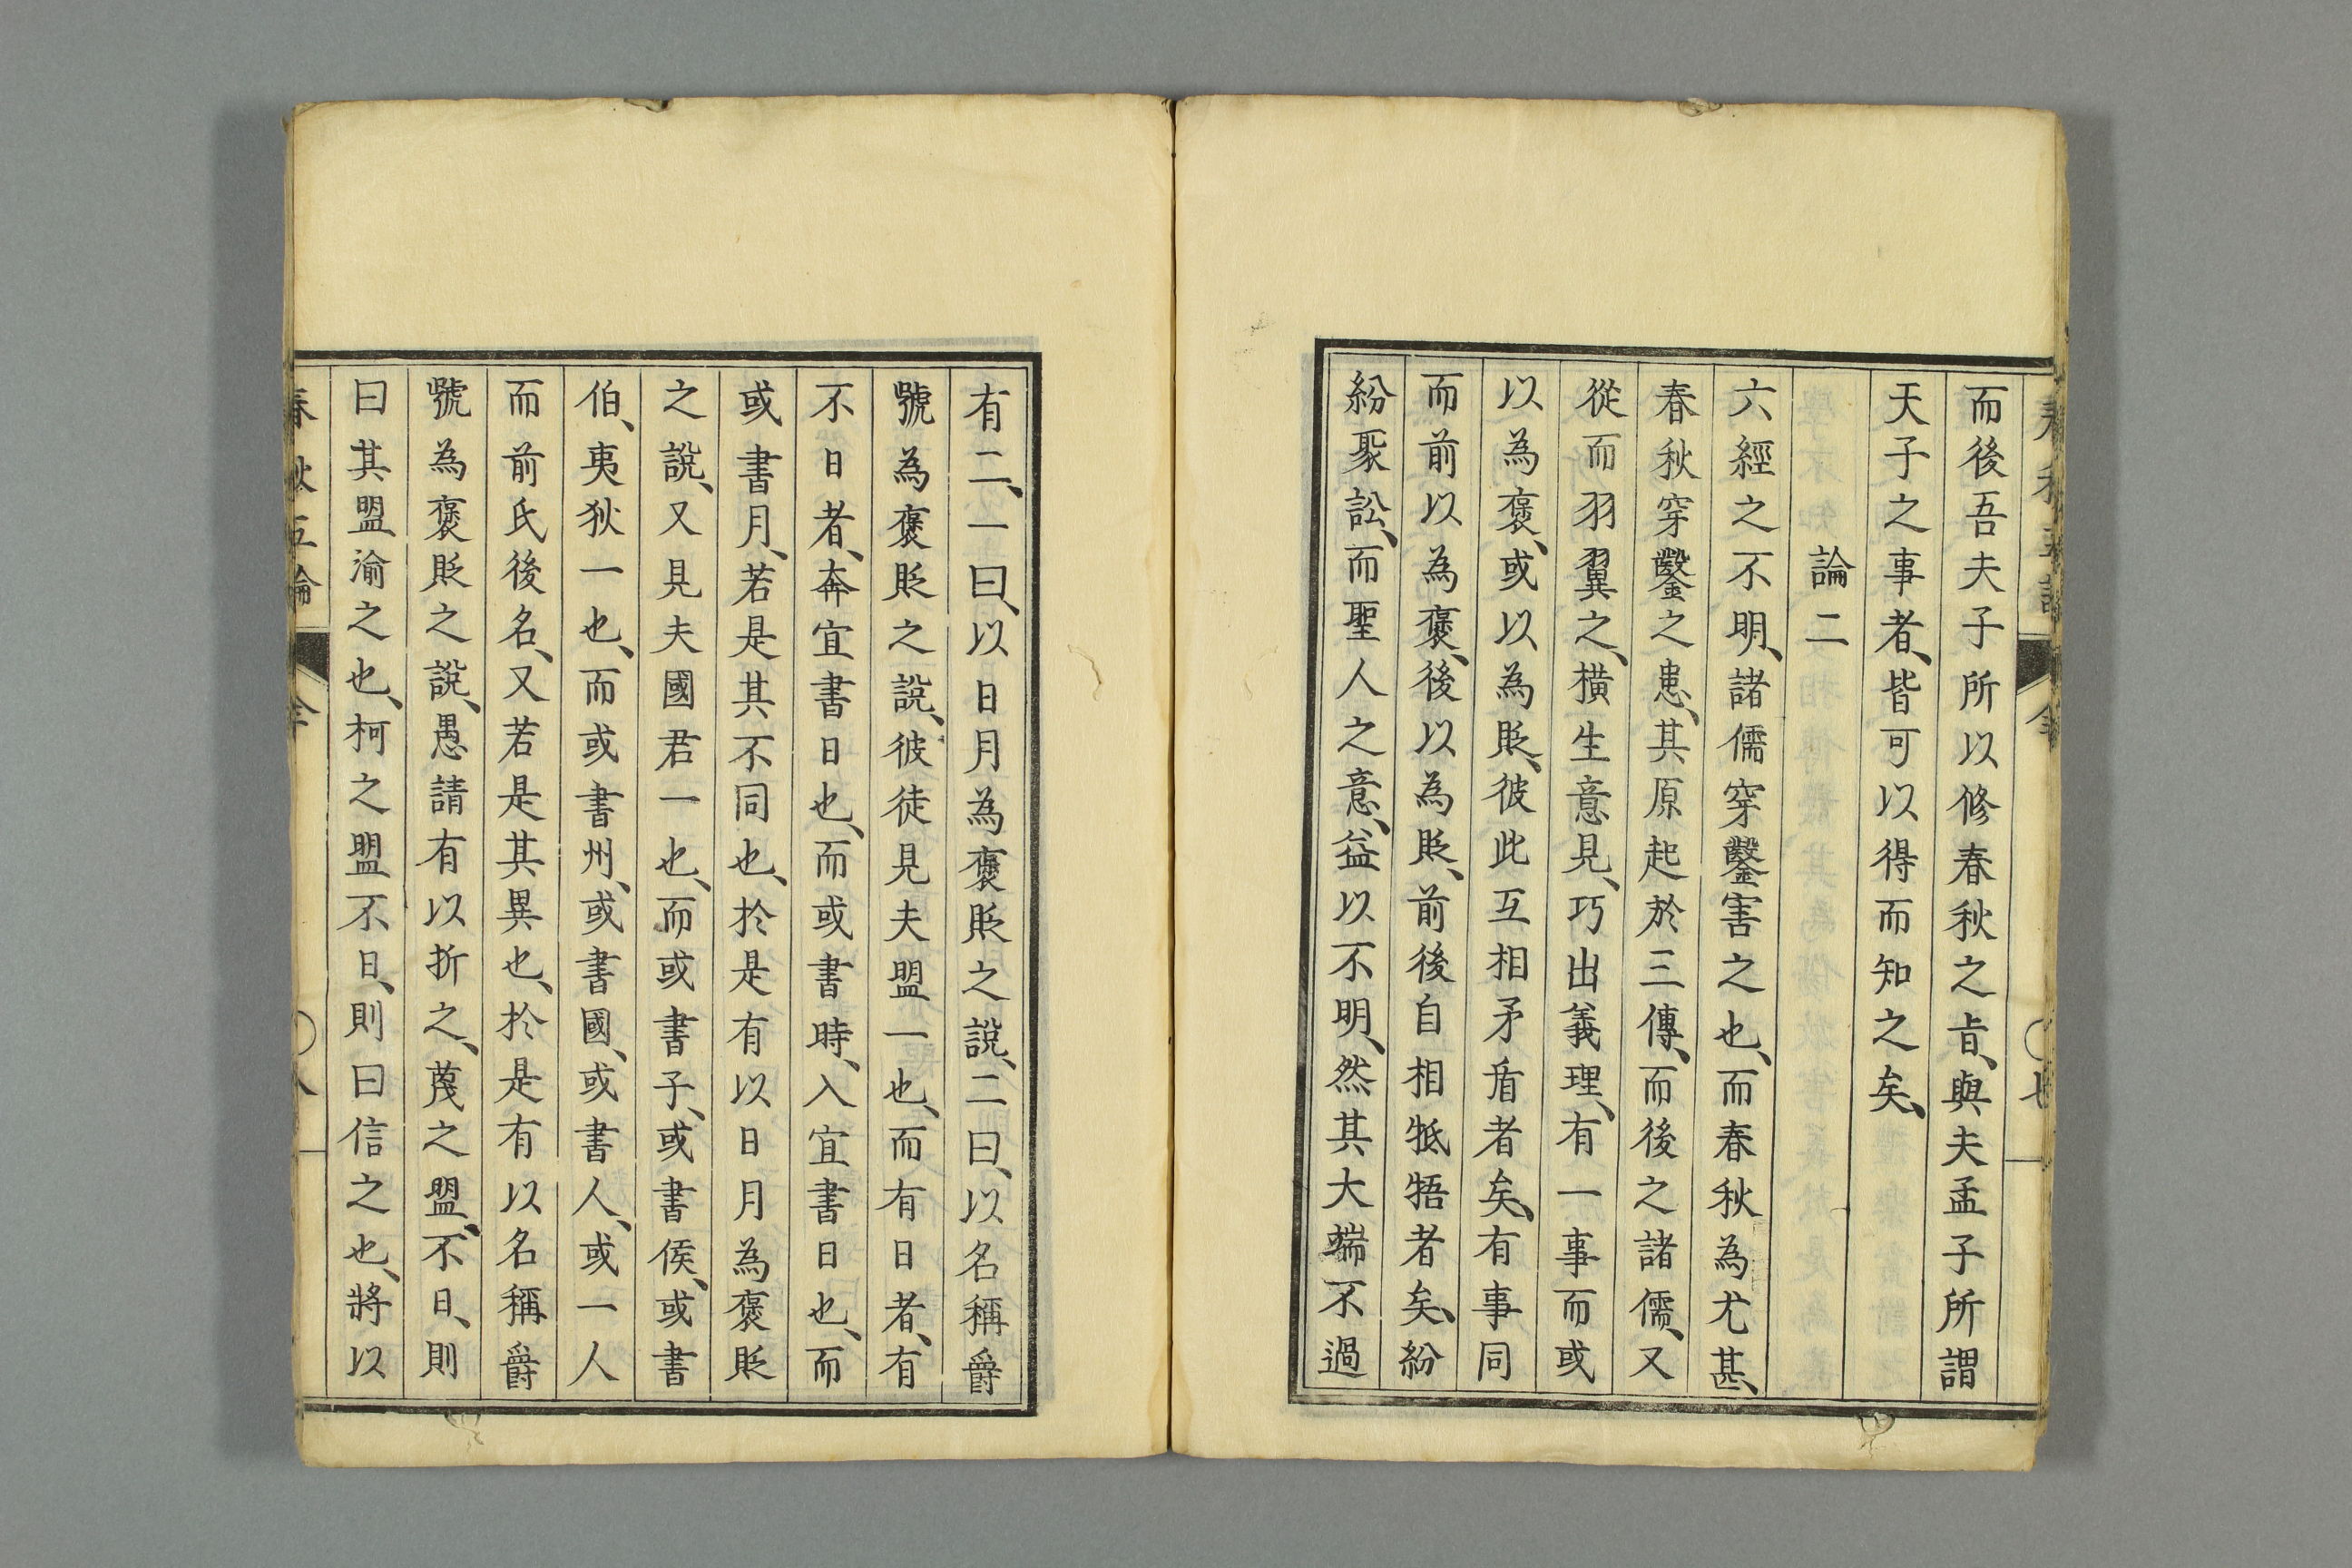 而後吾夫子所以修春秋之㫖、與夫孟子所謂
天子之事者、皆可以得而知之矣、
論二
六經之不明、諸儒穿鑿害之也、而春秋為尤甚、
春秋穿鑿之患、其原起於三傳、而後之諸儒、又
從而羽翼之、橫生意見、巧出義理、有一事而或
以為褒、或以為貶、彼此互相矛盾者矣、有事同
而前以為褒、後以為貶、前後自相牴牾者矣、紛
紛聚訟、而聖人之意、益以不明、然其大端不過
有二、一曰、以日月為褒貶之說、二曰、以名稱爵
號為褒貶之說、彼徒見夫盟一也、而有日者、有
不日者、奔宜書日也、而或書時、入宜書日也、而
或書月、若是其不同也、於是有以日月為褒貶
之說、又見夫國君一也、而或書子、或書侯、或書
伯、夷狄一也、而或書州、或書國、或書人、或一人
而前氏後名、又若是其異也、於是有以名稱爵
號為褒貶之說、愚請有以折之、蔑之盟、不日、則
曰其盟渝之也、柯之盟不日、則曰信之也、將以
春秋五論 全 ○八